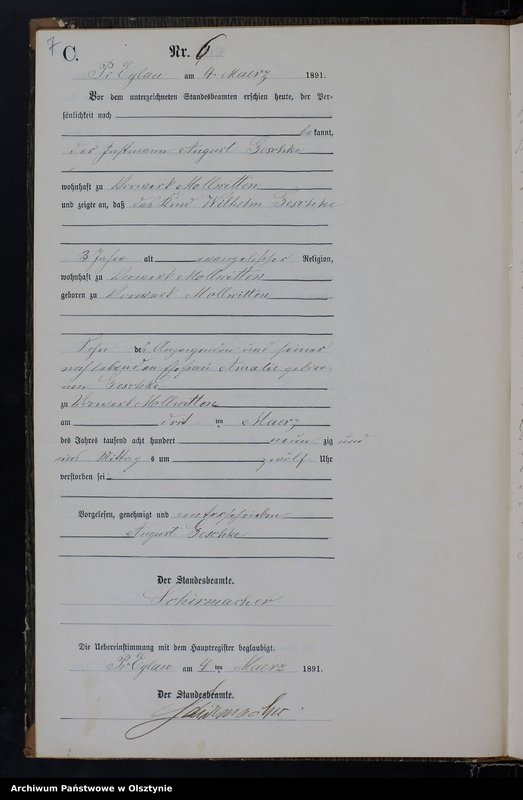 7
C.
Nr. 6
Pr. Eylau am 4. Maerz 1891.
Vor dem unterzeichneten Standesbeamten erschien heute, der Per-
sönlichkeit nach
bekannt,
der Instmann August Geschke
wohnhaft zu Vorwerk Mollwitten
und zeigte an, daß das Kind Wilhelm Geschke
3 Jahre alt evangelischer Religion,
wohnhaft zu Vorwerk Mollwitten
geboren zu Vorwerk Mollwitten
Sohn des Anzeigenden und seiner
noch lebenden Ehefrau Amalie gebore-
nen Geschke
zu Vorwerk Mollwitten
am drit ten Maerz
des Jahres tausend acht hundert neun zig und
eins Mittags um zwölf Uhr
verstorben sei.
Vorgelesen, genehmigt und unterschrieben
August Geschke
Der Standesbeamte.
Schirmacher
Die Uebereinstimmung mit dem Hauptregister beglaubigt.
Pr. Eylau am 4 ten Maerz 1891.
Der Standesbeamte.
Schirmacher
Archiwum Państwowe w Olsztynie